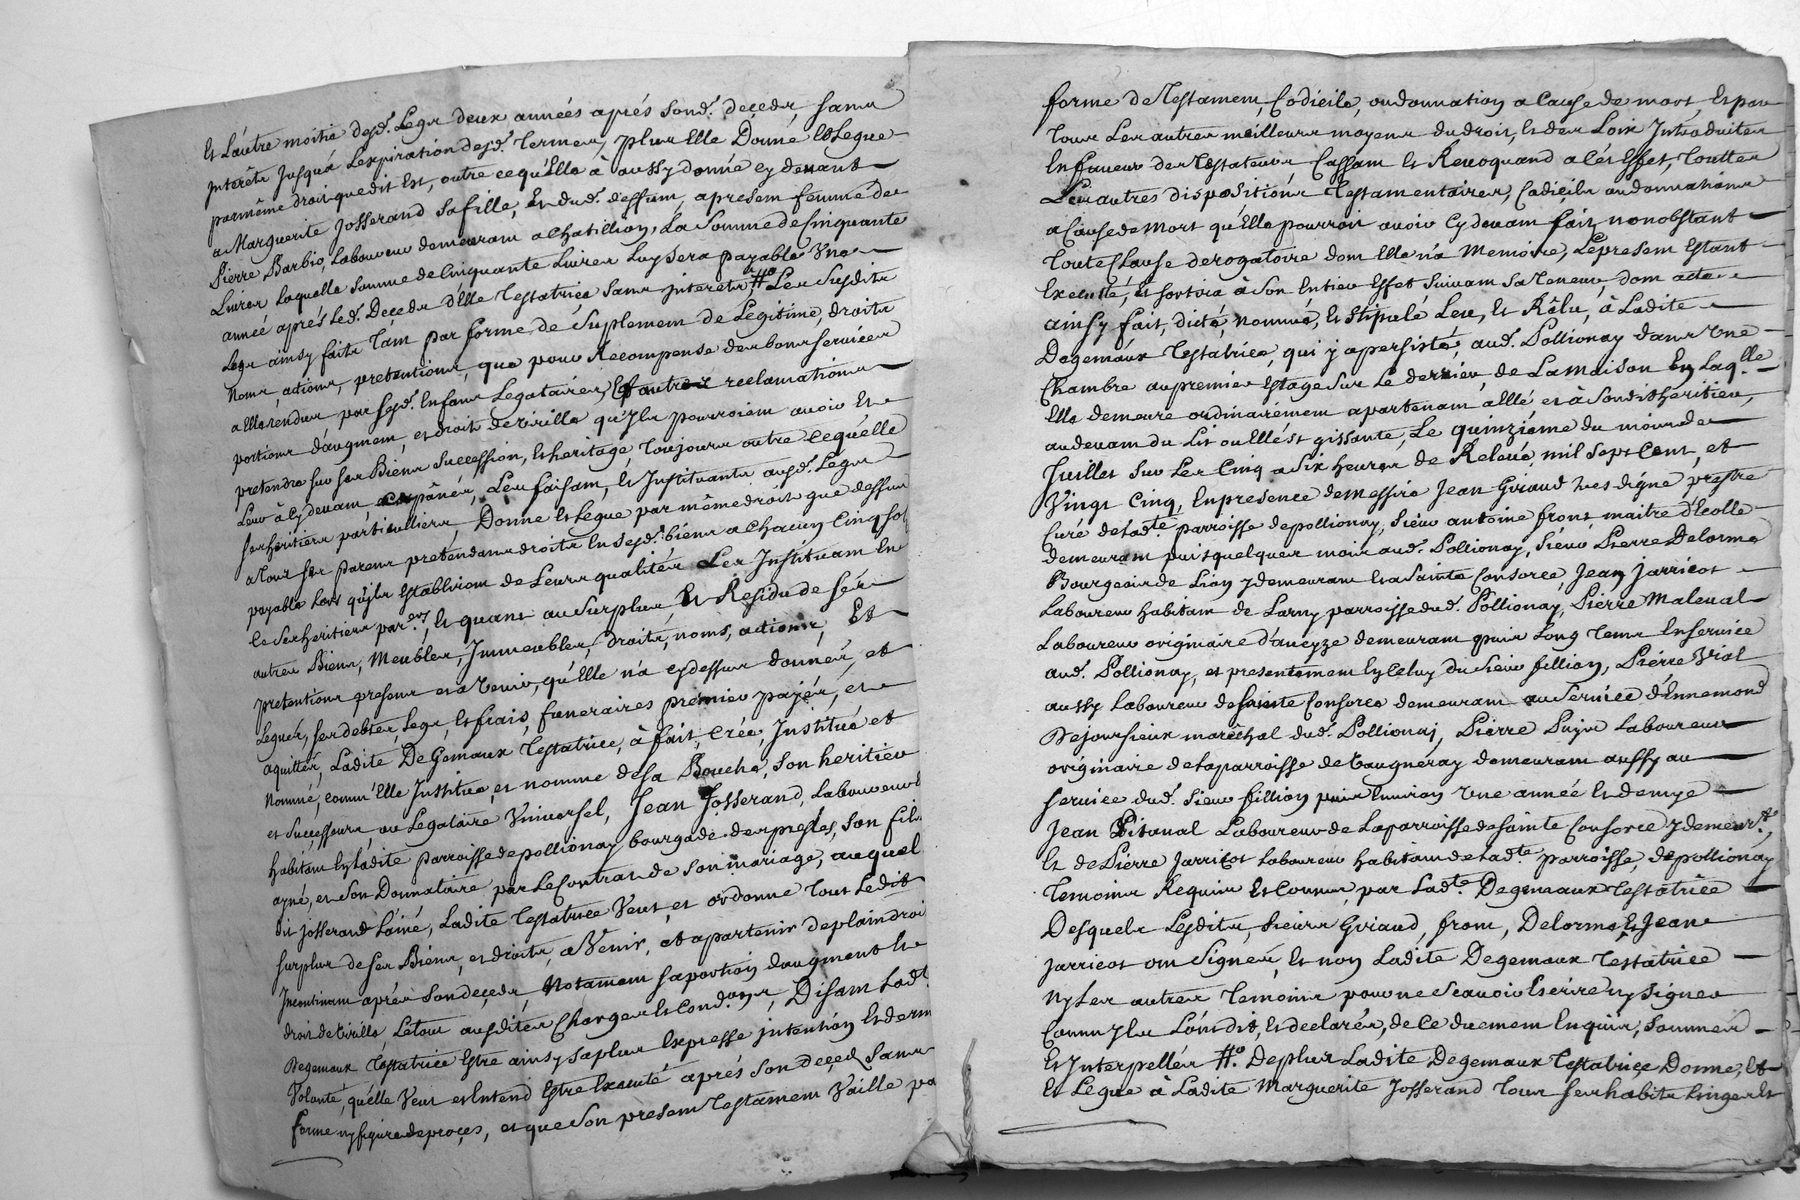 Et L'autre moitié desd. Legs deux années aprés Sond. deçeds Sans
jnterêts Jusquá Lexpiration desd. Termes, plus Elle Donné Et Legue
par même droit que dit Est, outre ce qu'Elle à aussy donné cy devant
a Marguerite Josserand Sa fille, Et dud. deffunt, apresent femme de
Pierre Barbio, Laboureur demeurant a Chatillion, La Somme de Cinquante
Livres Laquelle Somme de Cinquante Livres Luy Sera payable Une
anneé aprés Led. Deçeds d'Elle Testatrice Sans jnterets, # Les Susdits
Legs ainsy faits Tant par forme de Suplement de Legitime, droits
Noms, actions, pretentions, que pour Recompense des bons Services
a Elle rendus par Sesd. Enfans Legataires, Et autres reclamations
portions d'augment, et droits de virille qu'Jls pourroient avoir Et
pretendre Sur Ses Biens Succession, Et heritage, Toujours outre Ce qu'Elle
Leur à Cy devant, Les faisant, Et Jnstituants ausd. Legs
Ses heritiers particulliers Donne Et Legue par même droit que dessus
a Tous Ses parens pretendans droits En Sesd. biens a Chacun Cinq Sols
payable Lors qu'jls Establiront de Leurs qualités Les Jnstituant En
Ce Ses heritiers par.ers, Et quant au Surplus Et Residu de Ses
autres Biens, Meubles, Jmmeubles, droits, noms, actions, Et
pretentions presens et a venir, qu'Elle n'a cy dessus donnés, et
Legués, Ses debtes, Legs, Et frais, funeraires premier payés, et
aquittés, Ladite DeGemaux Testatrice, à fait, Créé, Jnstitué et
Nommé, comm'Elle Jnstitue, et nomme de Sa Bouche, Son heritier
et Successeur, ou Legataire Universel, Jean Josserand, Laboureur
habitant En Ladite parroisse de pollionay bourgade des presles, Son fils
ayné, et Son Donnataire par Le Contrat de Son mariage, auquel
dit Josserand L'ainé, Ladite Testatrice Veut, et ordonne Tout Ledit
Surplus de Ses Biens, et droits, a Venir, et apartenir de plain droit
Jncontinant aprés Son deçeds, Notament Sa portion d'augment Et
droit de Virille, Le tout ausdites Charges Et Cond.ons, Disant Lad.
Degemaux Testatrice Estre ainsy Sa plus Expresse jntention Et derniere
Volonté, qu'elle Veut et Entend Estre Executé aprés Son deçeds Sans
forme ny figure de proces, et que Son present Testament Vaille par
forme de Testament, Codicile, ou donnation a Cause de mort, Et par
Tous Les autres meilleurs moyens du droit, Et des Loix Jntroduites
En faveur des Testateurs Cassant Et Revoquand a Cét Effet, Toutes
Les autres dispositions Testamentaires, Codiciles ou donnations
a Cause de Mort qu'Elle pourroit avoir Cy devant fait nonobstant
Toute Clause derogatoire dont Elle n'a Memoire, Le present Estant
Executé, Et Sortira à Son Entier Effet Suivant Sa Teneur, dont acte
ainsy fait, dicté, nommé, Et Stipulé Leu, Et Rélu, à Ladite
Degemaux Testatrice, qui j a persisté, aud. Pollionay dans Une
Chambre au premier Estage Sur Le derrier, de La maison En Laq.lle
Elle demeure ordinairement apartenant a Ellé et à Sondit heritier,
au devant du Lit ou Elle est gissante, Le quinziéme du mois de
Juillet Sur Les Cinq a Six heures de Relevé, mil Sept Cent, et
Vingt Cinq, En presence de Messire Jean Giraud tres digne prestre
Curé de Lad.te parroisse de pollionay, Sieur antoine front, maitre d'Ecolle
demeurant puis quelques mois aud. Pollionay, Sieur Pierre Delorme
Bourgeois de Lion y demeurant Et a Sainte Consorce, Jean Jarricot
Laboureur habitant de Larny parroisse dud. Pollionay, Pierre Maleval
Laboureur originaire d'aveyze demeurant puis Long Tems En Service
aud. Pollionay, et presentement En Celuy du Sieur fillion, Pierre Viol
aussy Laboureur de Sainte Consorce demeurant au Service d'Ennemond
Dejoursieux maréchal dud. Pollionaj, Pierre Pujin Laboureur
originaire de La parroisse de Vaugneray demeurant aussy au
Service dud. Sieur fillion puis Environ Une année Et demye
Jean Pitaval Laboureur de La parroisse de Sainte Consorce y demeur.t,
Et de Pierre Jarricot Laboureur habitant de Lad.te parroisse, de pollionay
Temoins Requis Et Connus, par Lad.te Degemaux Testatrice
Desquels Lesdits, Sieurs Giraud, front, Delorme, Et Jean
Jarricot ont Signés, Et non Ladite Degemaux Testatrice
Ny Les autres Temoins pour ne Scavoir Escrire ny Signer
Comm'jls L'ont dit, Et declarés, de Ce duement Enquis, Sommés
Et Jnterpellés #. De plus Ladite Degemaux Testatrice Donne, Et
Et Legue à Ladite Marguerite Josserand Tous Ses habits Linges Et